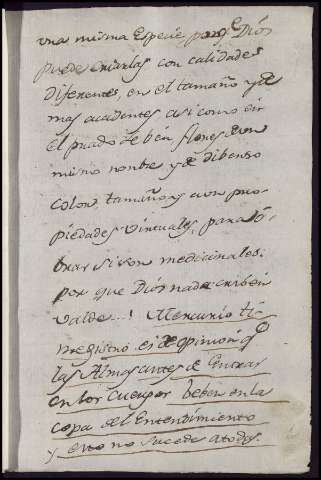 una misma Especie, porq.e Diós
puede criarlas con calidades
Diferentes, en el tamaño y de
mas accidentes asi como en
el prado se ben flores de un
mismo nonbre y de diberso
color, tamaños, y con pro-
piedades virtuales, para ó-
brar si son medicinales.
por que Diós nada criben
valde...! Mercurio tri
megistro es de opinión q.e
las Almas antes de Entrar
en los cuerpos beben en la
copa del Entendimiento
y esto no sucede a todos.